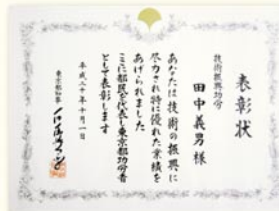 表彰状
技術振興功労
田中義男様
あなたは技術の振興に
尽力され特に優れた業績を
あげられました
ここに都民を代表し東京都功労者
として表彰します
平成二十年十月一日
東京都知事